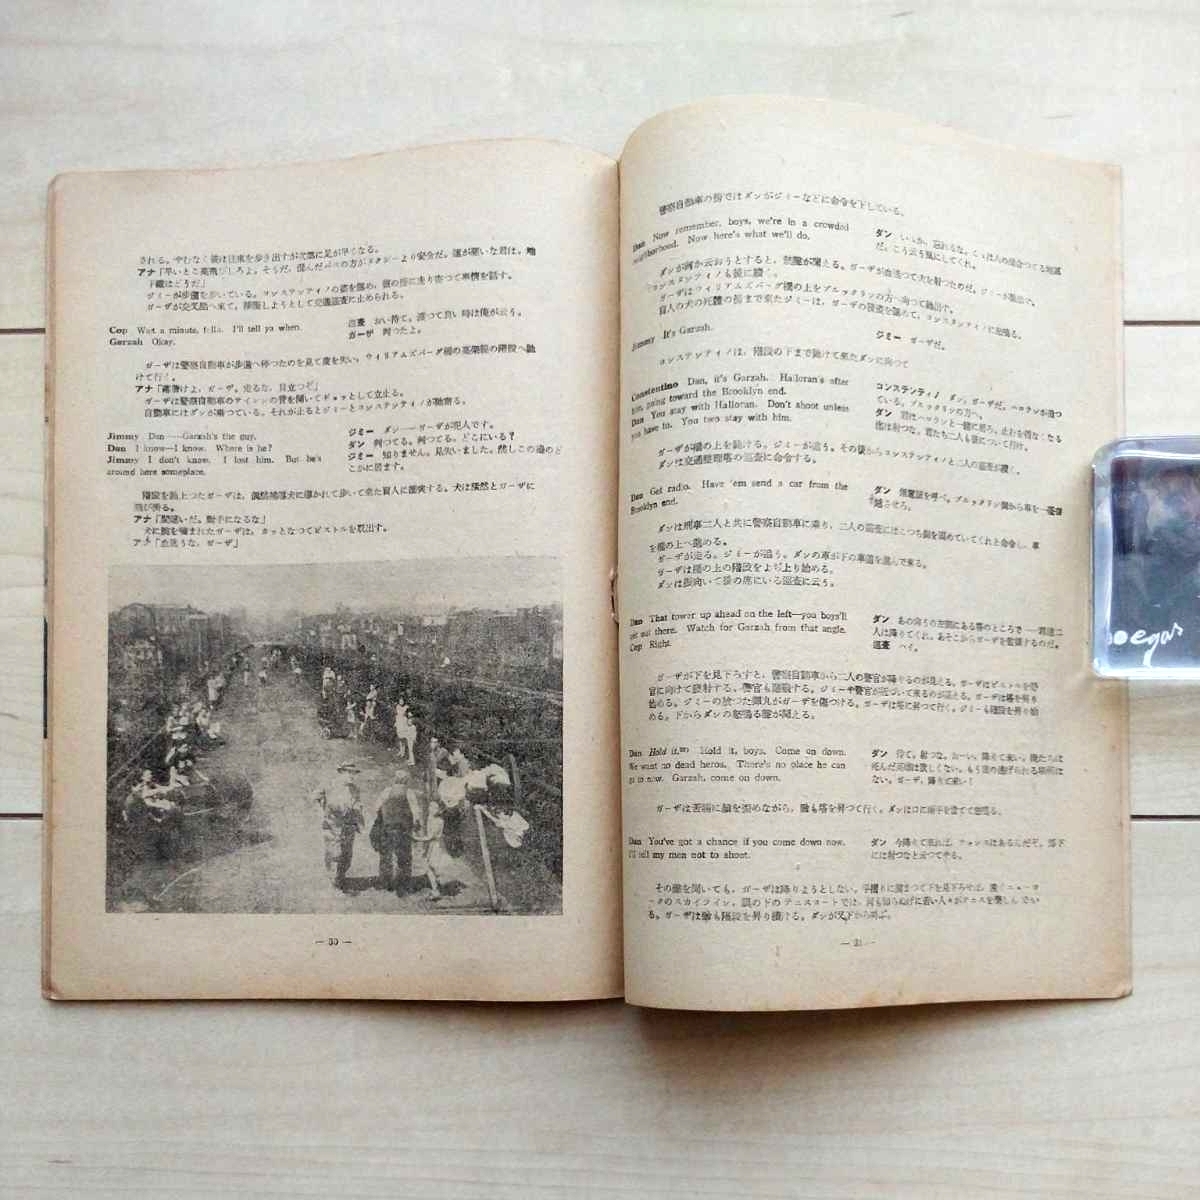 される。やむなく彼は往来を歩き出すが次第に足が早くなる。
アナ「早いとこ高飛びしろよ。そうだ、混んだバスの方がタクシーより安全だ。運が悪いな君は。地
下鐵はどうだ」
ジミーが歩道を歩いている。コンスタンティノの姿を認め、彼の所に走り寄つて事情を話す。
ガーザが交叉点へ来て、横斷しようとして交通巡査に止められる。
Cop Wait a minute, fella. I'll tell ya when.
Garzah Okay.
巡査 おい待て。渡つて良い時は俺が云う。
ガーザ 判つたよ。
ガーザは警察自動車が歩道へ停つたのを見て度を失い、ウィリアムズバーグ橋の高架線の階段へ駈
けて行く。
アナ「落着けよ、ガーザ。走るな、目立つぞ」
ガーザは警察自動車のサイレンの音を聞いてギョッとして立止る。
自動車にはダンが乗つている。それが止るとジミーとコンスタンティノが駈寄る。
Jimmy Dan——Garzah's the guy.
Dan I know—I know. Where is he?
Jimmy I don't know. I lost him. But he's
around here someplace.
ジミー ダン——ガーザが犯人です。
ダン 判つてる。判つてる。どこにいる?
ジミー 知りません。見失いました。然しこの邊のど
こかに居ます。
階段を駈上つたガーザは、偶然盲導犬に導かれて歩いて来た盲人に衝突する。犬は猛然とガーザに
飛び掛る。
アナ「間違いだ。動手になるな」
犬に腕を噛まれたガーザは、カッとなつてピストルを取出す。
アナ「血迷うな、ガーザ」
— 30 —
警察自動車の傍ではダンがジミーなどに命令を下している。
Dan Now remember, boys, we're in a crowded
neighborhood. Now here's what we'll do.
ダン いゝか、忘れるな、こゝは人の混合つてる地區
だ。こう云う風にしてくれ。
ダンが何か云おうとすると、銃聲が聞える。ガーザが血迷つて犬を射つたのだ。ジミーが駈出す。
コンスタンティノも後に續く。
ガーザはウィリアムズバーグ橋の上をブルックリンの方へ向つて駈出す。
盲人の犬の死體の傍まで来たジミーは、ガーザの後姿を認めて、コンスタンティノに怒鳴る。
Jimmy It's Garzah.
ジミー ガーザだ。
コンスタンティノは、階段の下まで駈けて来たダンに向つて
Constentino Dan, it's Garzah. Halloran's after
him, going toward the Brooklyn end.
Dan You stay with Halloran. Don't shoot unless
you have to. You two stay with him.
コンスタンティノ ダン、ガーザだ。ハロランが追つ
ている。ブルックリンの方へ。
ダン 君はハロランと一緒に居ろ。止むを得なくなる
迄は射つな。君たち二人も彼について行け。
ガーザが橋の上を駈ける。ジミーが追う。その後からコンスタンティノと二人の巡査が續く。
ダンは交通整理塔の巡査に命令する。
Dan Get radio. Have 'em send a car from the
Brooklyn end.
ダン 無電話を呼べ。ブルックリン側から車を一臺寄
越させろ。
ダンは刑事二人と共に警察自動車に乗り、二人の巡査にはこつち側を固めていてくれと命令し、車
を橋の上へ進める。
ガーザが走る。ジミーが追う。ダンの車が下の車道を進んで来る。
ガーザは橋の上の階段をよぢ上り始める。
ダンは振向いて後の席にいる巡査に云う。
Dan That tower up ahead on the left—you boys'll
get out there. Watch for Garzah from that angle.
Cop Right.
ダン あの向うの左側にある塔のところで——君達二
人は降りてくれ。あそこからガーザを監視するのだ。
巡査 ハイ。
ガーザが下を見下ろすと、警察自動車から二人の警官が降りるのが見える。ガーザはピストルを
官に向けて發射する。警官も應戰する。ジミーや警官が近づいて来るのが見える。ガーザは塔を昇り
始める。ジミーの放つた彈丸がガーザを傷つける。ガーザは塔に昇つて行く。ジミーも階段を昇り始
める。下からダンの怒鳴る聲が聞える。
Dan Hold it. Hold it, boys. Come on down.
We want no dead heros. There's no place he can
go to now. Garzah, come on down.
ダン 待て。射つな。おーい、降りて来い。俺たちは
死んだ英雄は欲しくない。もう彼の逃げられる場所は
ない。ガーザ、降りて来い!
ガーザは苦痛に顔を歪めながら、尚も塔を昇つて行く。ダンは口に兩手を當てて怒鳴る。
Dan You've got a chance if you come down now.
I'll tell my men not to shoot.
ダン 今降りて来れば、チャンスはあるんだぞ。部下
には射つなと云つてやる。
その聲を聞いても、ガーザは降りようとしない。手摺りに掴まつて下を見下ろせば、遠くニューヨ
ークのスカイライン、眼の下のテニスコートでは、何も知らぬげに若い人々がテニスを樂しんでい
る。ガーザは尚も階段を昇り續ける。ダンが又下から叫ぶ。
— 31 —
egas